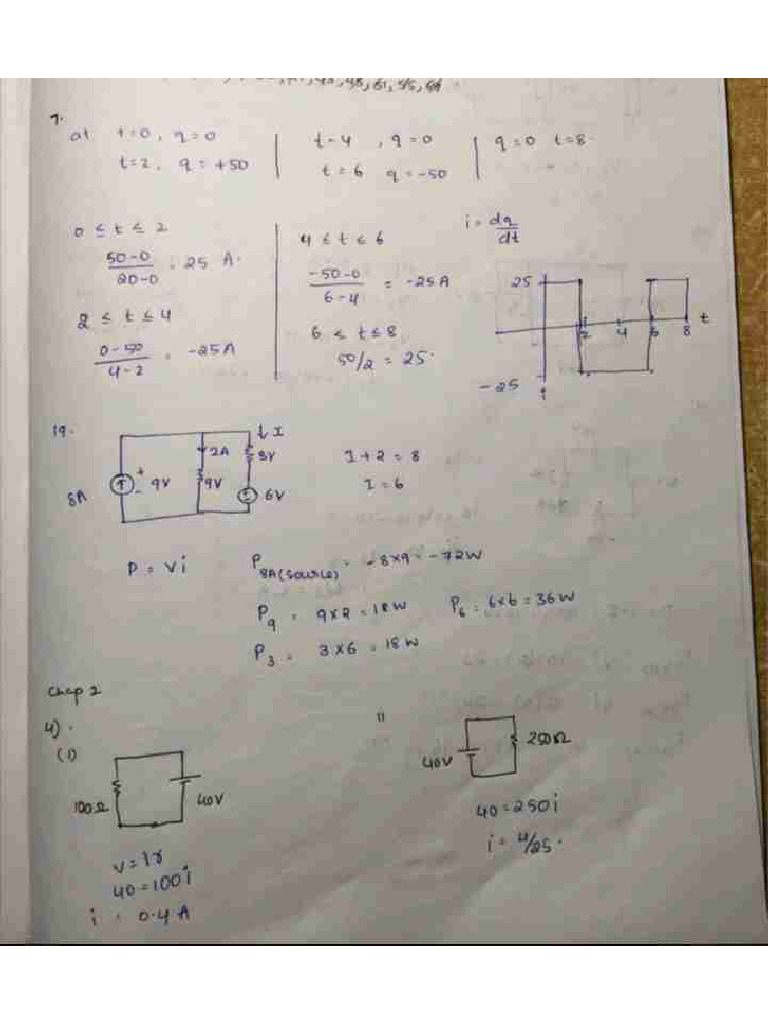 7.
at t=0, q=0
t=2, q=+50
t=4, q=0
t=6 q=-50
q=0 t=8
0 ≤ t ≤ 2
50-0 / 20-0 = 25 A.
2 ≤ t ≤ 4
0-50 / 4-2 = -25A
4 ≤ t ≤ 6
-50-0 / 6-4 = -25A
6 ≤ t ≤ 8
50/2 = 25
i = dq/dt
25
2 4 6 8 t
-25
i
19.
↓ I
2A
3V
8A + - 9V 9V
6V
I+2=8
I=6
P = Vi
P 8A(source) = -8x9 = -72W
P9 = 9x2 = 18W P6 = 6x6 = 36W
P3 = 3x6 = 18W
Chap 2
4).
(i)
100Ω 40V
V=Ir
40=100i
i = 0.4 A
ii
40V 250Ω
40=250i
i = 4/25.